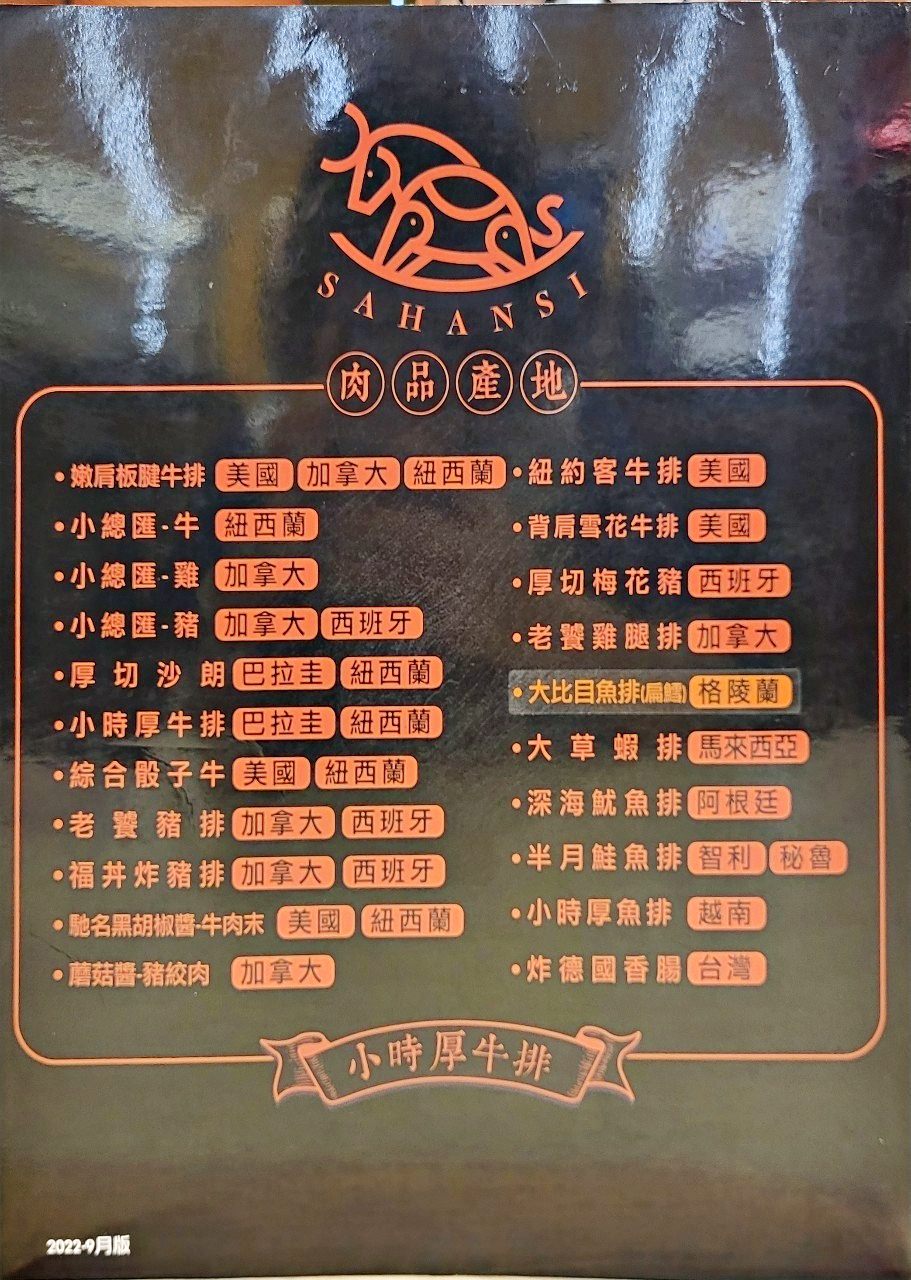 SAHANSI
肉品產地
•嫩肩板腱牛排 美國 加拿大 紐西蘭
•小總匯-牛 紐西蘭
•小總匯-雞 加拿大
•小總匯-豬 加拿大 西班牙
•厚切沙朗 巴拉圭 紐西蘭
•小時厚牛排 巴拉圭 紐西蘭
•綜合骰子牛 美國 紐西蘭
•老饕豬排 加拿大 西班牙
•福丼炸豬排 加拿大 西班牙
•馳名黑胡椒醬-牛肉末 美國 紐西蘭
•蘑菇醬-豬絞肉 加拿大
•紐約客牛排 美國
•背肩雪花牛排 美國
•厚切梅花豬 西班牙
•老饕雞腿排 加拿大
•大比目魚排(扁鱈) 格陵蘭
•大草蝦排 馬來西亞
•深海魷魚排 阿根廷
•半月鮭魚排 智利 秘魯
•小時厚魚排 越南
•炸德國香腸 台灣
小時厚牛排
2022-9月版